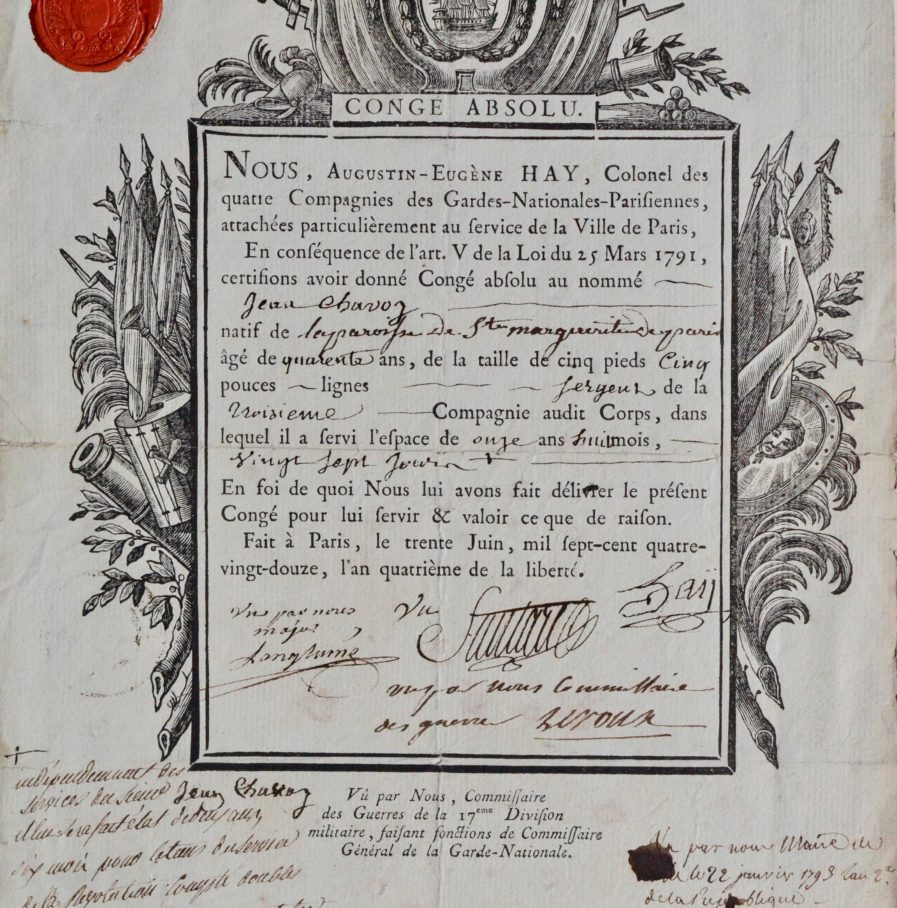 CONGÉ ABSOLU.
NOUS, AUGUSTIN-EUGÈNE HAY, Colonel des
quatre Compagnies des Gardes-Nationales-Parisiennes,
attachées particulièrement au service de la Ville de Paris,
En conséquence de l'art. V de la Loi du 25 Mars 1791,
certifions avoir donné Congé absolu au nommé
Jean Chavoz
natif de la paroisse de Ste marguerite de paris
âgé de quarente ans, de la taille de cinq pieds Cinq
pouces lignes Sergent de la
troisieme Compagnie audit Corps, dans
lequel il a servi l'espace de onze ans huit mois,
vingt sept jours +
En foi de quoi Nous lui avons fait délivrer le présent
Congé pour lui servir & valoir ce que de raison.
Fait à Paris, le trente Juin, mil sept-cent quatre-
vingt-douze, l'an quatrième de la liberté.
Hay
Vu par nous Vu
major
Langlumé
vu par nous Commissaire
des guerres Leroux
+
indépendamment des
services du Sieur Jean Chavoz
dix mois pour le tems du service
de la Révolution Compté doubles
Vû par Nous, Commissaire
des Guerres de la 17eme Division
militaire, faisant fonctions de Commissaire
Général de la Garde-Nationale.
par nous Maire de
le 22 janvier 1793 l'an 2e
de la République